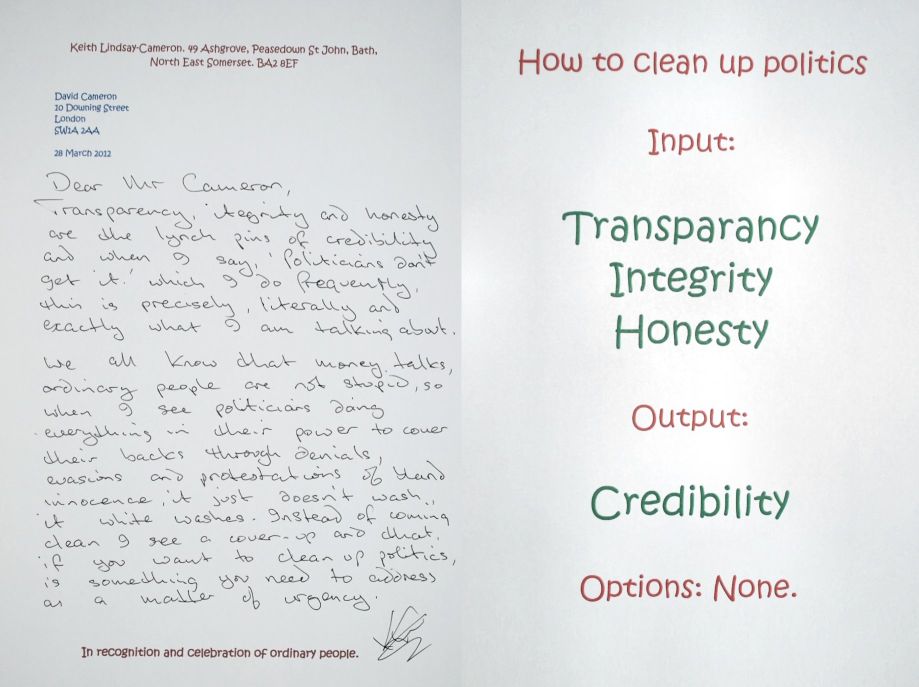 Keith Lindsay-Cameron. 49 Ashgrove, Peasedown St John, Bath,
North East Somerset. BA2 8EF
David Cameron
10 Downing Street
London
SW1A 2AA
28 March 2012
Dear Mr Cameron,
Transparency, itegrity and honesty
are the lynch pins of credibility
and when I say, 'Politicians don't
get it.' which I do frequently,
this is precisely, literally and
exactly what I am talking about.
We all know that money talks,
ordinary people are not stupid, so
when I see politicians doing
everything in their power to cover
their backs through denials,
evasions and protestations of bland
innocence, it just doesn't wash,
it white washes. Instead of coming
clean I see a cover-up and that,
if you want to clean up politics,
is something you need to address
as a matter of urgency.
In recognition and celebration of ordinary people.
How to clean up politics
Input:
Transparancy
Integrity
Honesty
Output:
Credibility
Options: None.